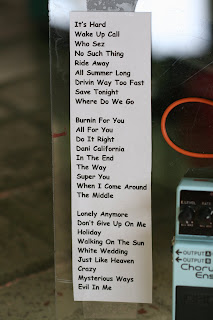 It's Hard
Wake Up Call
Who Sez
No Such Thing
Ride Away
All Summer Long
Drivin Way Too Fast
Save Tonight
Where Do We Go
Burnin For You
All For You
Do It Right
Dani California
In The End
The Way
Super You
When I Come Around
The Middle
Lonely Anymore
Don't Give Up On Me
Holiday
Walking On The Sun
White Wedding
Just Like Heaven
Crazy
Mysterious Ways
Evil In Me
LEVEL
OUTPUT
OUTPUT
Choru
Ens